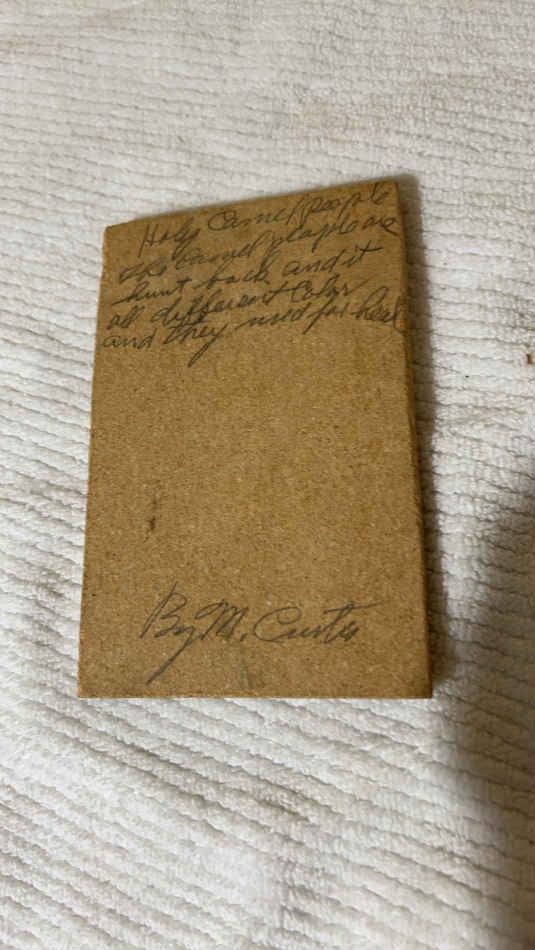 Holy Camel people
the Camel people are
hunt back and it
all different Color
and they used for heal
By M. Curtis